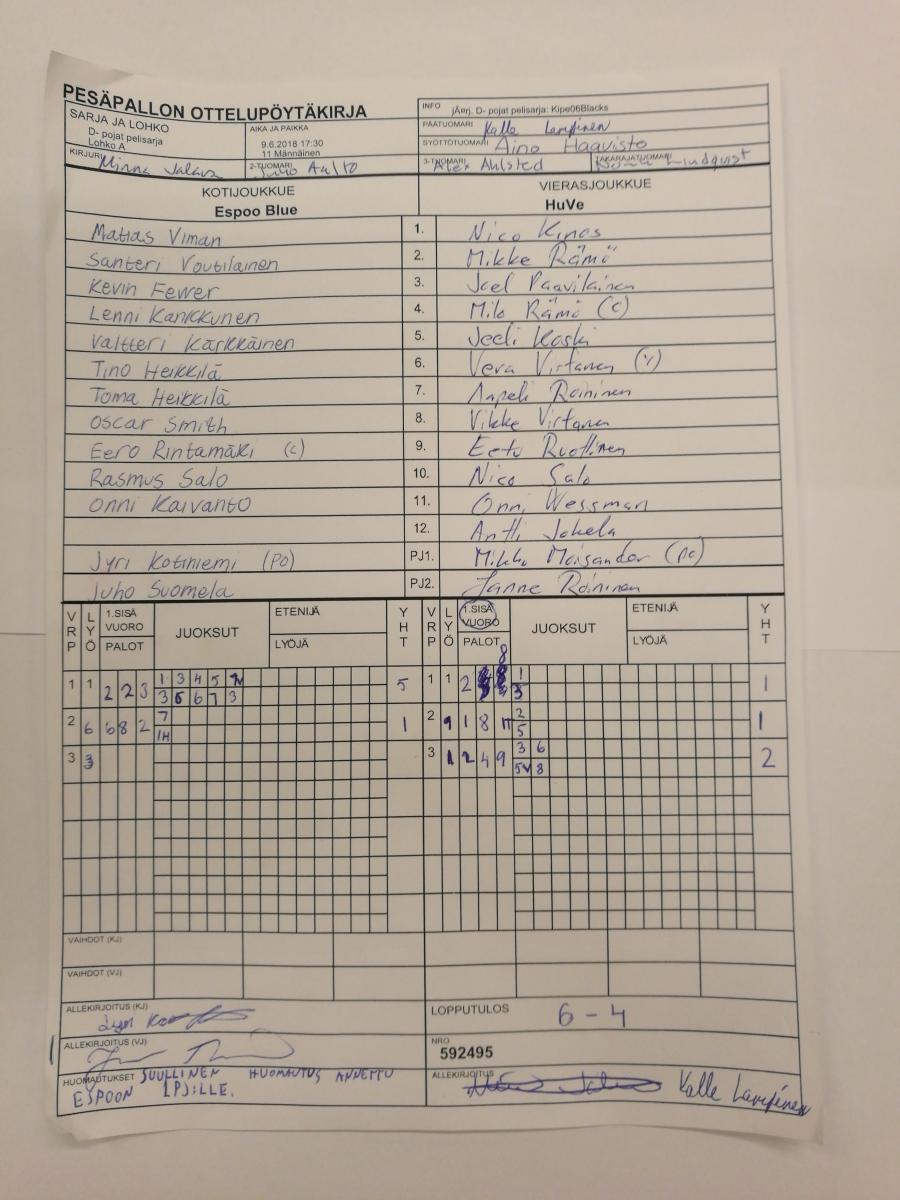 PESÄPALLON OTTELUPÖYTÄKIRJA
SARJA JA LOHKO
D- pojat pelisarja
Lohko A
AIKA JA PAIKKA
9.6.2018 17:30
11 Männäinen
INFO järj. D- pojat pelisarja: Kipe06Blacks
PÄÄTUOMARI Kalle Lampinen
SYÖTTÖTUOMARI Aino Haavisto
KIRJURI Minna Jalava
2-TUOMARI Juho Aalto
3-TUOMARI Alex Ahlsted
TAKARAJATUOMARI Lindqvist
KOTIJOUKKUE
Espoo Blue
VIERASJOUKKUE
HuVe
Matias Viman 1. Nico Kinos
Santeri Voutilainen 2. Mikke Rämö
Kevin Fewer 3. Joel Paavilainen
Lenni Kankkunen 4. Milo Rämö (c)
Valtteri Kärkkäinen 5. Jeeli Koski
Tino Heikkilä 6. Vera Virtanen (V)
Toma Heikkilä 7. Aapeli Roininen
Oscar Smith 8. Vikke Virtanen
Eero Rintamäki (c) 9. Eetu Ruottinen
Rasmus Salo 10. Nico Salo
Onni Kaivanto 11. Onni Wessman
12. Antti Jokela
Jyri Kotiniemi (PO) PJ1. Mikko Moisander (PO)
Juho Suomela PJ2. Janne Roininen
VRP LYÖ 1.SISÄ VUORO PALOT JUOKSUT ETENIJÄ LYÖJÄ YHT VRP LYÖ 1.SISÄ VUORO PALOT JUOKSUT ETENIJÄ LYÖJÄ YHT
8
1 1 2 2 3 1 3 4 5 5 1 1 2 1 1
3 6 6 7 3 3
2 6 6 8 2 7 1 2 9 1 8 11 2 1
1H 5
3 3 3 1 2 4 9 3 6 2
5V 8
VAIHDOT (KJ)
VAIHDOT (VJ)
ALLEKIRJOITUS (KJ)
LOPPUTULOS 6 - 4
ALLEKIRJOITUS (VJ)
NRO
592495
HUOMAUTUKSET SUULLINEN HUOMAUTUS ANNETTU
ESPOON 1PJ:LLE.
ALLEKIRJOITUS Kalle Lampinen